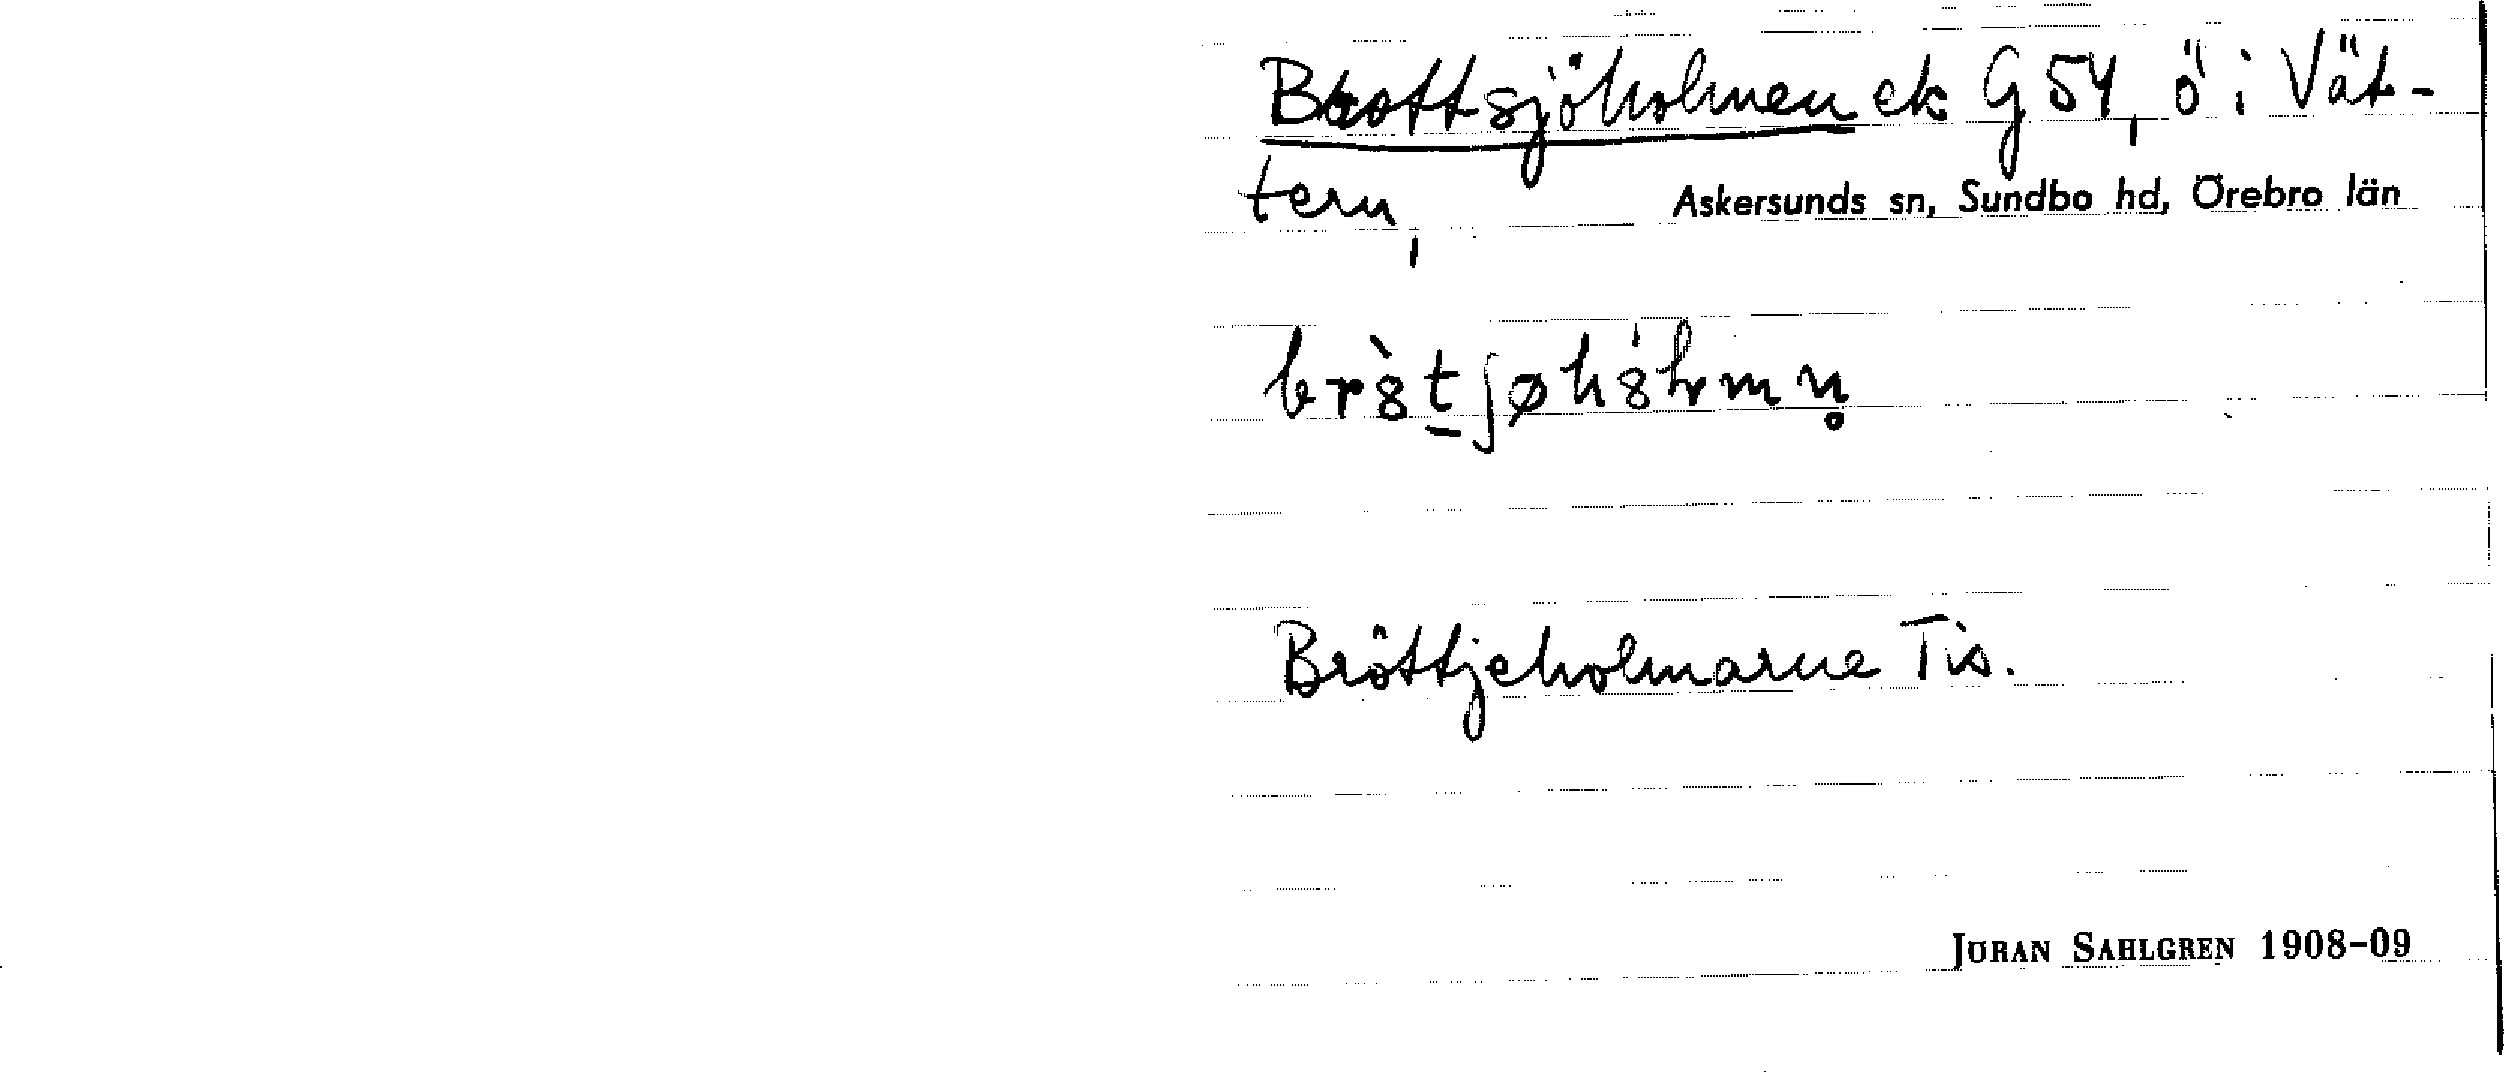 Brottsjöholmen ek G 54, ö i Vät-
tern,
Askersunds sn, Sundbo hd, Örebro län
Bröttjeholmarne Tis.
JÖRAN SAHLGREN 1908-09